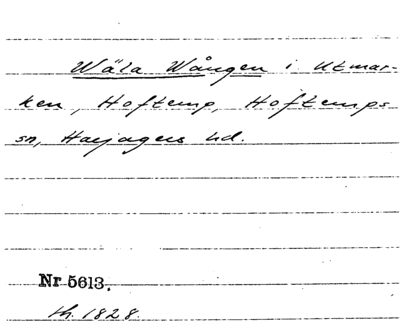 Wäla Wången i Utmar-
ken, Hoftemp, Hoftemps
sn, Harjagers hd.
Nr 5613.
th. 1828.